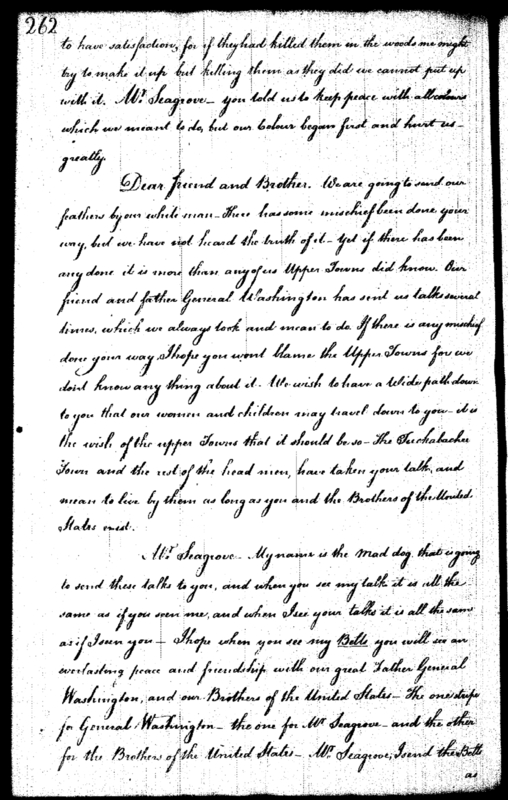 262
to have satisfaction, for if they had killed them in the woods we might
try to make it up but killing them as they did we cannot put up
with it. Mr. Seagrove – you told us to keep peace with all colours
which we meant to do, but our Colour began first and hurt us
greatly.
Dear friend and Brother. We are going to send our
feathers by our white man – There has some mischief been done your
way, but we have not heard the truth of it – yet if there has been
any done it is more than any of us Upper Towns did know. Our
friend and father General Washington has sent us talks several
times, which we always took and mean to do. If there is any mischief
done your way, I hope you wont blame the Upper Towns for we
dont know any thing about it. We wish to have a Wide path down
to you that our women and children may travel down to you – it is
the wish of the upper Towns that it should be so – The Tuckabacher
Town and the rest of the head men, have taken your talk, and
mean to live by them as long as you and the Brothers of the United
States exist.
Mr. Seagrove – My name is the Mad dog, that is going
to send these talks to you, and when you see my talk it is all the
same as if you seen me, and when I see your talks it is all the same
as if I seen you – I hope when you see my Belts you will see an
everlasting peace and friendship with our great Father General
Washington, and our Brothers of the United States – The one stripe
for General Washington – the one for Mr. Seagrove – and the other
for the Brothers of the United States – Mr. Seagrove, I send the Belts
as